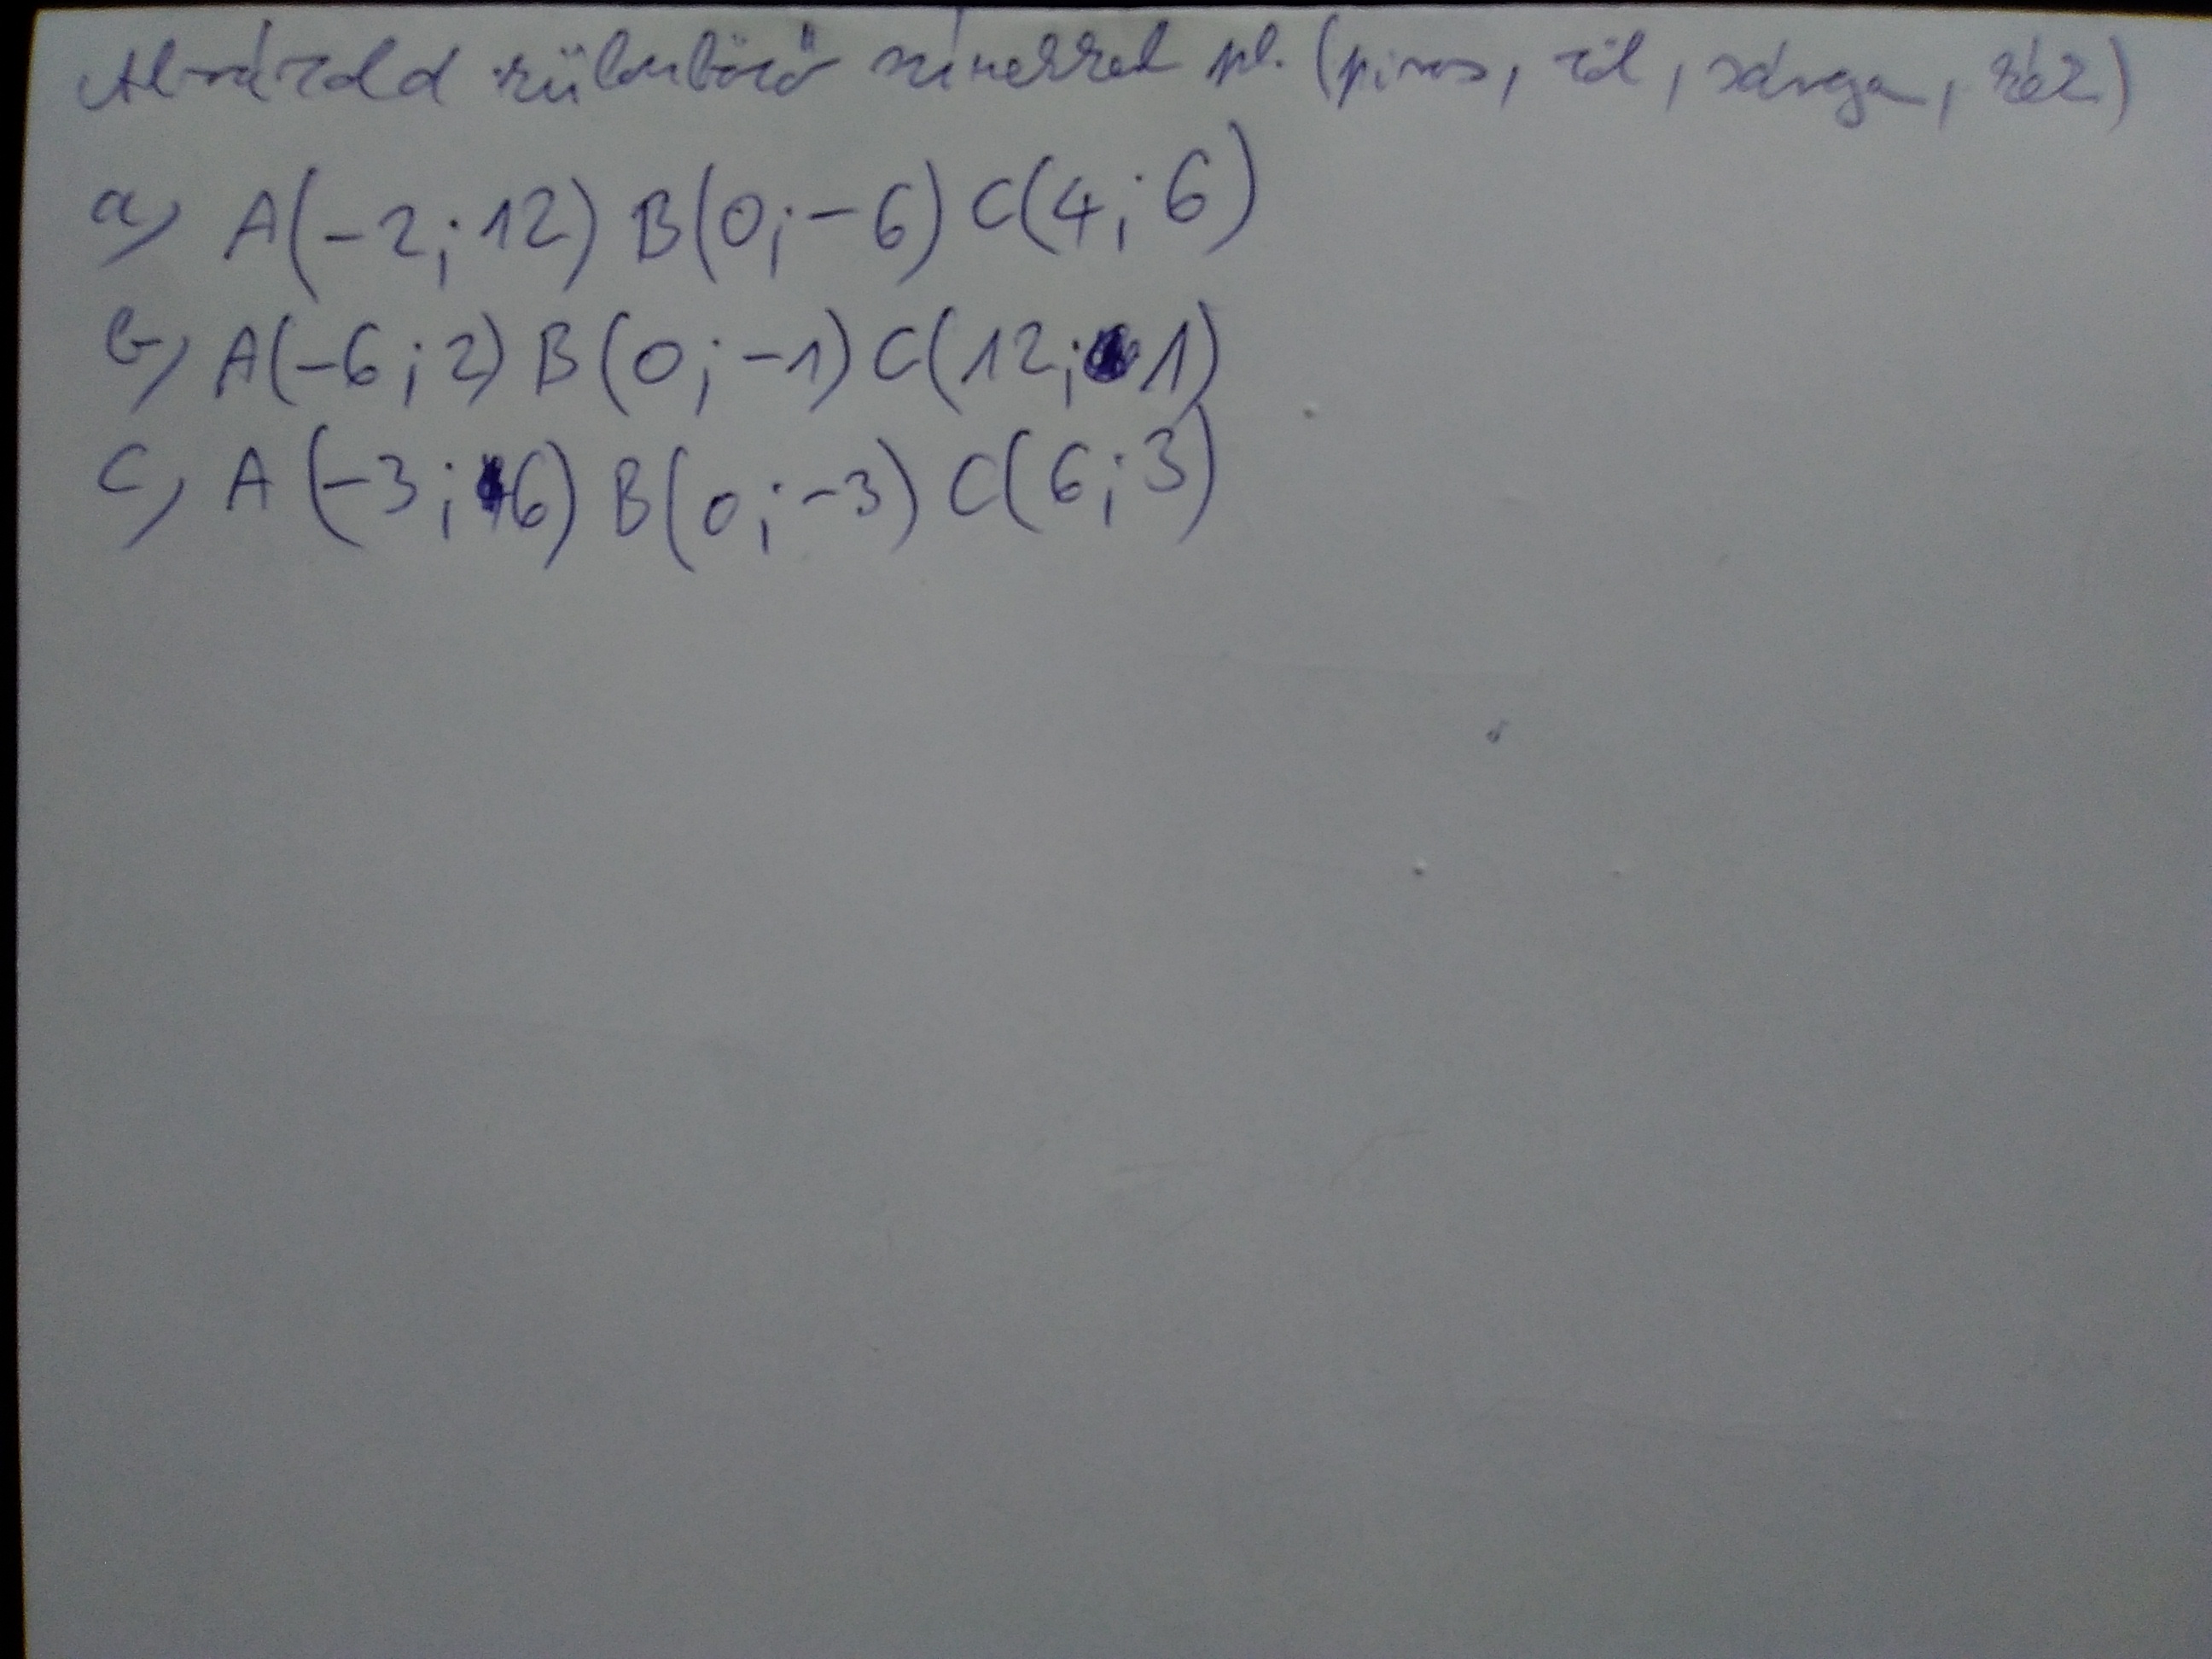 Ábrázold különböző színekkel pl. (piros, zöld, sárga, kék)
a, A(-2; 12) B(0; -6) C(4; 6)
b, A(-6; 2) B(0; -1) C(12; 1)
c, A(-3; 6) B(0; -3) C(6; 3)